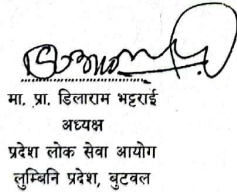 मा. प्रा. डिलाराम भट्टराई
अध्यक्ष
प्रदेश लोक सेवा आयोग
लुम्बिनि प्रदेश, बुटवल